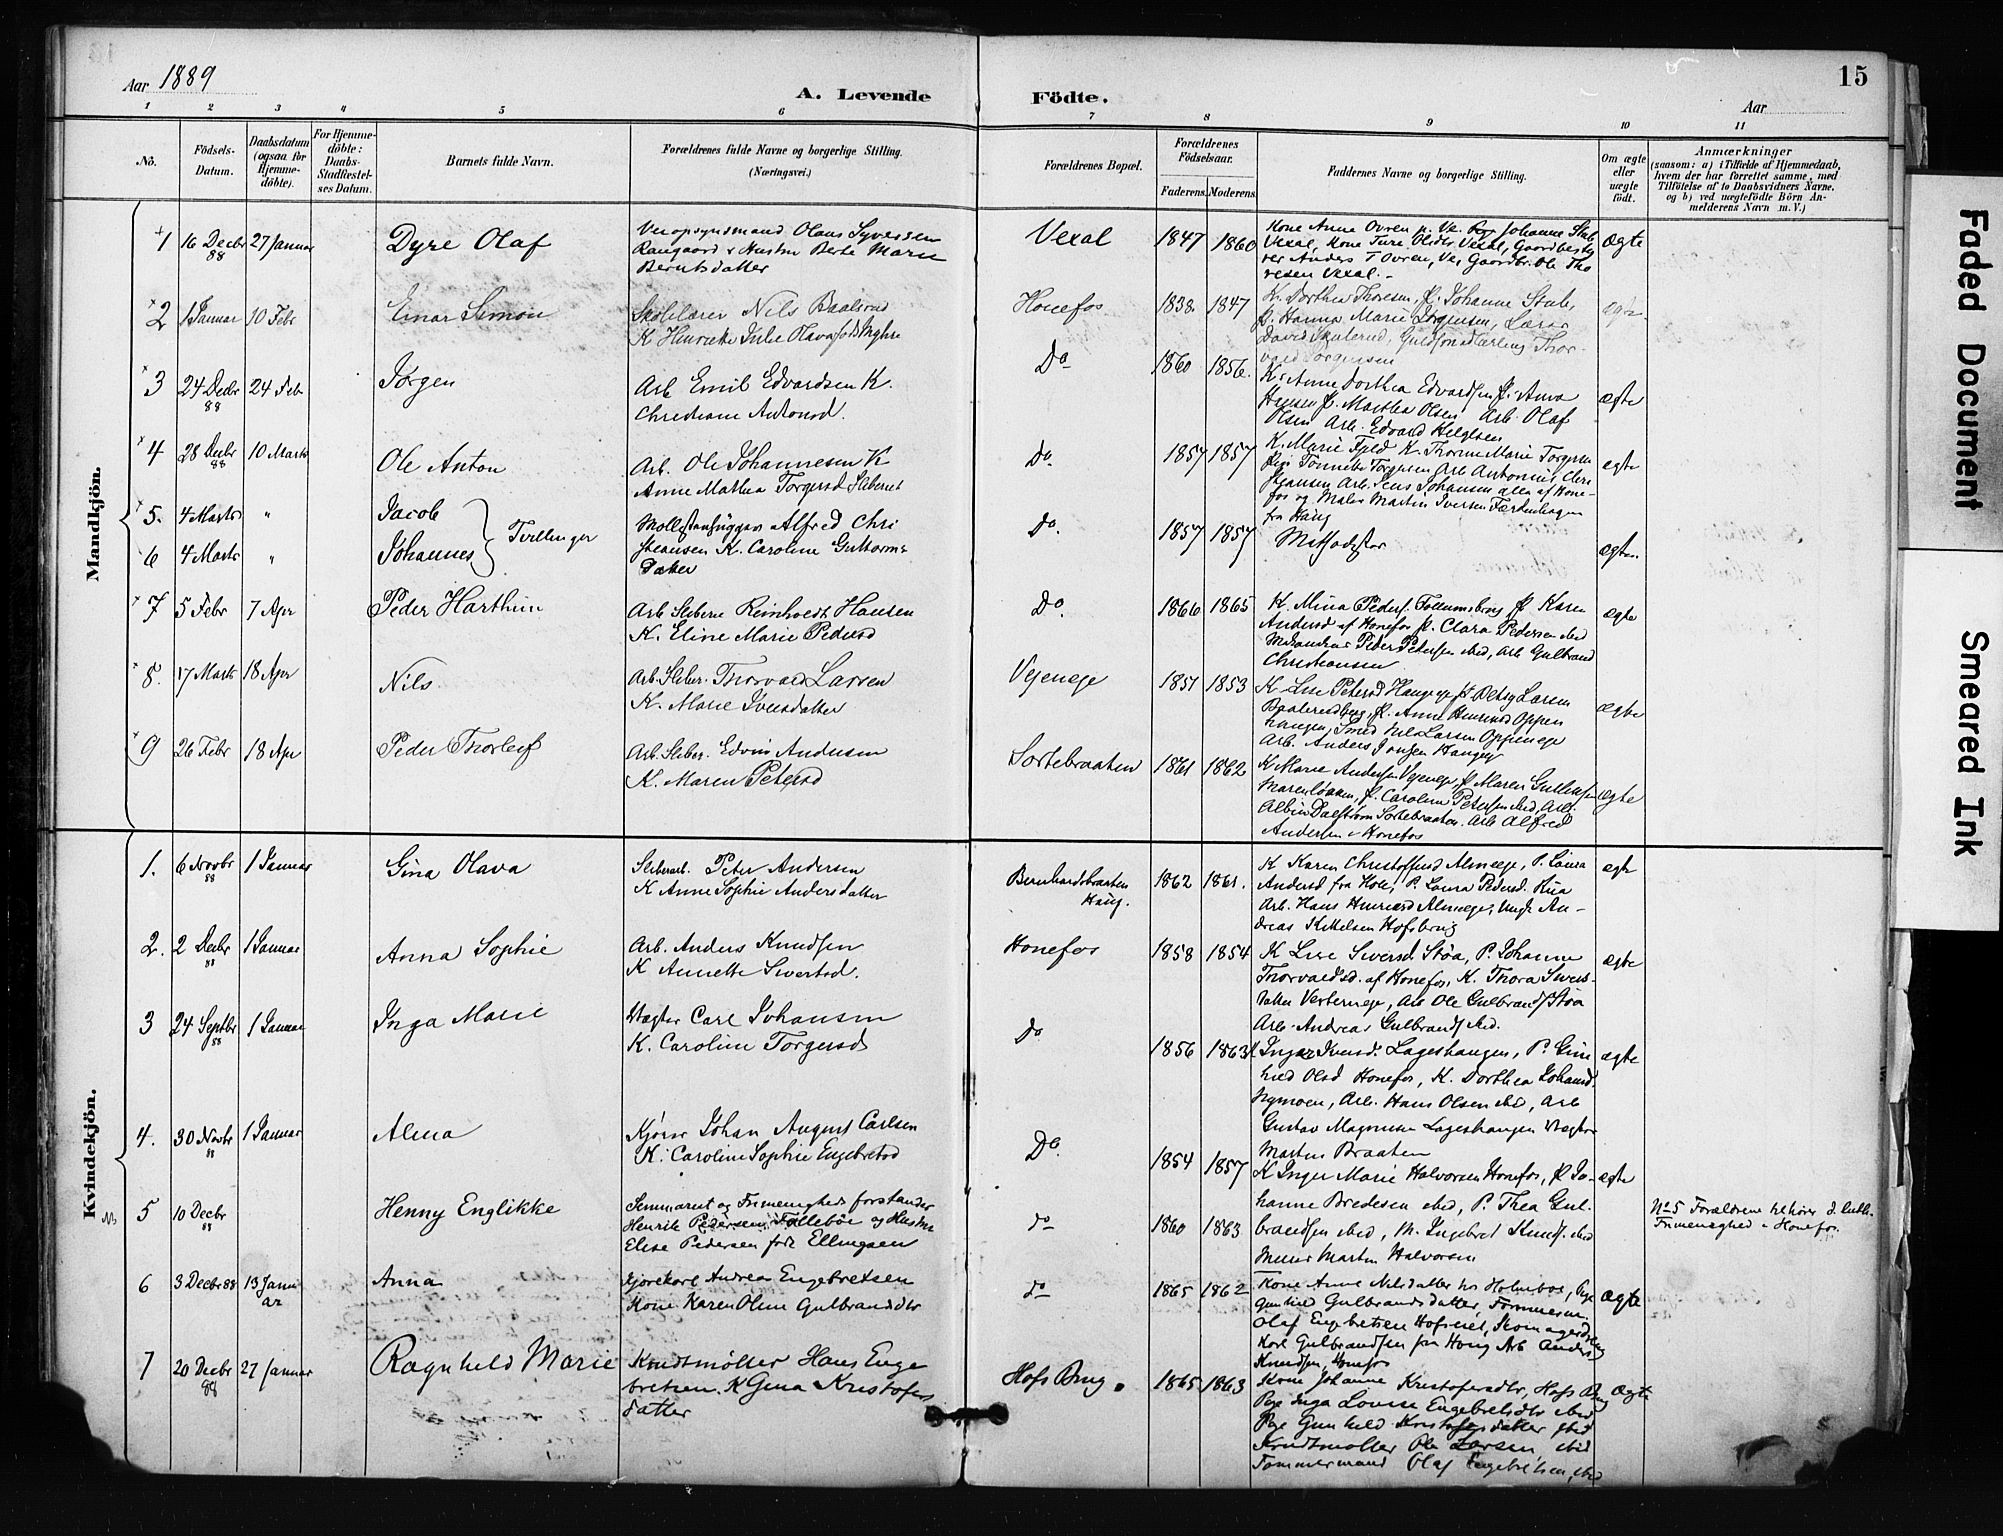 Aar 1889
A. Levende Födte.
Aar
15
1 2 3 4 5 6 7 8 9 10 11
No.
Födsels-Datum.
Daabsdatum (ogsaa for Hjemme-döbte).
For Hjemme-döbte: Daabs-Stadfæstel-ses Datum.
Barnets fulde Navn.
Forældrenes fulde Navne og borgerlige Stilling.
(Næringsvei.)
Forældrenes Bopæl.
Forældrenes Födselsaar.
Faderens. Moderens.
Faddernes Navne og borgerlige Stilling.
Om ægte eller uægte födt.
Anmærkninger
(saasom: a) i Tilfælde af Hjemmedaab, hvem der har forrettet samme, med Tilföielse af to Daabsvidners Navne, og b) ved uægtefödte Börn An-melderens Navn m. V.)
Mandkjön.
1 16 Decbr 88 27 Januar Dyre Olaf
Veiopsynsmand Olaus Syversen
Raugaard & Hustru Berte Marie
Berntsdatter
Vexal 1847 1860
Kone Anne Ovren
Johanne Stub
Vexal, Kone Ture Olsdtr Vexal, Gaardbesty
rer Anders T Ovren, Gaardbr. Ole Tho
resen Vexal.-
Ægte
2 1 Januar 10 Febr Einar Simon
Skolelærer Nils Baalsrud
K Henriette Julie Olava
Honefos 1838 1847
K. Dorthea Thoresen, P. Johanne Stub,
P. Hanna Marie Jörgensen, Lærer
David Skalerud, Guldsmedlærling Thor-
vald Jörgensen
3 24 Decbr 88 24 Feb Jørgen
Arb Emil Edvardsen K.
Christiane Antonsd.
Do 1860 1856.
K. Anne Dorthea Edvardsen P. Anna
Hansen P. Marthea Olsen Arb. Olaf
Olsen Arb. Edvard Helgesen
ægte
4 28 Decbr 88 10 Marts Ole Anton
Arb. Ole Johannesen K
Anne Mathea Torgersd
Do 1857 1857
K. Marie Fjeld K. Thorine Marie Torgersen
Arb Antonius Chri
stiansen Arb. Jens Johansen alle af Hone-
fos og Maler Martin Iversen
fra Haug
egte
5. 4 Marts " Jacob
6 4 Marts " Johannes } Tvillinger
Alfred Chri
stiansen K. Caroline Guttorms
Datter
Do. 1857 1857 Methodister ægte.
7 5 Febr 7 Apr Peder Harthun
Arb Sliberie Reinholdt Hansen
K. Eline Marie Pedersd
Do. 1866 1865
K. Mina Peders. Follumsberg P. Karen
Andersd af Honefos P. Clara Pedersen ibid
Mekanikus Peder Pedersen ibid, Arb Gulbrand
Christiansen
ægte
8. 17 Marts 18 Apr Nils
Arb. Sliber. Thorvald Larsen
K. Marie Iversdatter
Vejenege 1851 1853
K Lise Petersd Haugege P. Betsy Larsen
P. Anne Oppen
haugen, Smed Nils Larsen Oppenege
Arb. Anders Jonsen Haugeg
ægte
9 26 Febr 18 Apr Peder Thorleif
Arb. Sliber. Edvin Andersen
K. Maren Petersd
Sortebraaten 1861 1862
K Marie Andersen Vejenege P Maren Gulliksen
P. Caroline Petersen ibid, Arb.
Albin Dalstrøm Sortebraaten. Arb Alfred
Andersen Honefos
ægte
Kvindekjön.
1. 6 Novbr 88 1 Januar Gina Olava
Sliberarb. Peter Andersen
K Anne Sophie Andersdatter
Bernhardsbraaten
Haug.
1862 1861.
K Karen Christoffersd Almege, P. Laura
Andersd fra Hole, P. Laura Pedersd.
Arb. Hans Almege, Ungk An-
dreas Kittelsen Hofsbrug
egte
2. 2 Decbr 88 1 Januar Anna Sophie
Arb. Anders Knudsen
K Annette Sivertsd.
Honefos 1858 1854
K Lise Siversd. Støa, P. Johanne
Thorvaldsd. af Honefos, K. Thora Sivers-
datter Vesternege, Arb Ole Gulbrands. Støa
Arb. Andreas Gulbrands ibid.
ægte
3 24 Septbr 88 1 Januar Inga Marie
Vægter Carl Johansen
K. Caroline Torgersd
Do 1856 1863
Inger Iversd. Lageshaugen, P. Gun
hild Olsd Honefos, K. Dorthea Johansd.
Nymoen, Arb. Hans Olsen ibid, Arb
Gustav Magnusen Lageshaugen Vægter
Martin Braaten
ægte
4. 30 Novbr 88 1 Januar Alma
Kjører Johan August Carlsen
K. Caroline Sophie Engebretsd
Do. 1854 1857
K Inger Marie Halvorsen Honefos, P Jo-
hanne Bredesen ibid, P. Thea Gul-
brandsen ibid, M. Ingebret Knuds. ibid
Martin Halvorsen
ægte
5 10 Decbr 88 Henny Englikke
Seminarist og Frimenigheds forstander
Henrik Pedersen Follebøe og Hustru
Elise Pedersen født Ellingsen
do 1860 1863
No 5 Forældrene tilhører d. luth.
Frimenighed i Honefos.
6 3 Decbr 88 13 Janu
ar
Anna
Kjørekarl Andreas Engebretsen
Kone Karen Oline Gulbrandsdtr
do 1865 1862
Kone Anne Nilsdatter hos Holmboe, Pige
Gunhild Gulbrandsdatter, Tømmerm.
Olaf Engebretsen Hofseiet,
Karl Gulbrandsen fra Honef Arb Anders
Knudsen, Honefos
ægte
7 20 Decbr 88 27 Januar Ragnhild Marie
Kndtmøller Hans Enge
bretsen. K Gina Kristofers
datter
Hofs Brug. 1865 1863
Kone Johanne Kristofersdtr, Hofs Brug
Pige Inga Lovise Engebretsdtr ibid
Pige Gunhild Kristofersdatter ibid
Kndtmøller Ole Larsen, ibid
Tømmermand Olaf Engebretsen, ibid
ægte
Faded Document
Smeared Ink